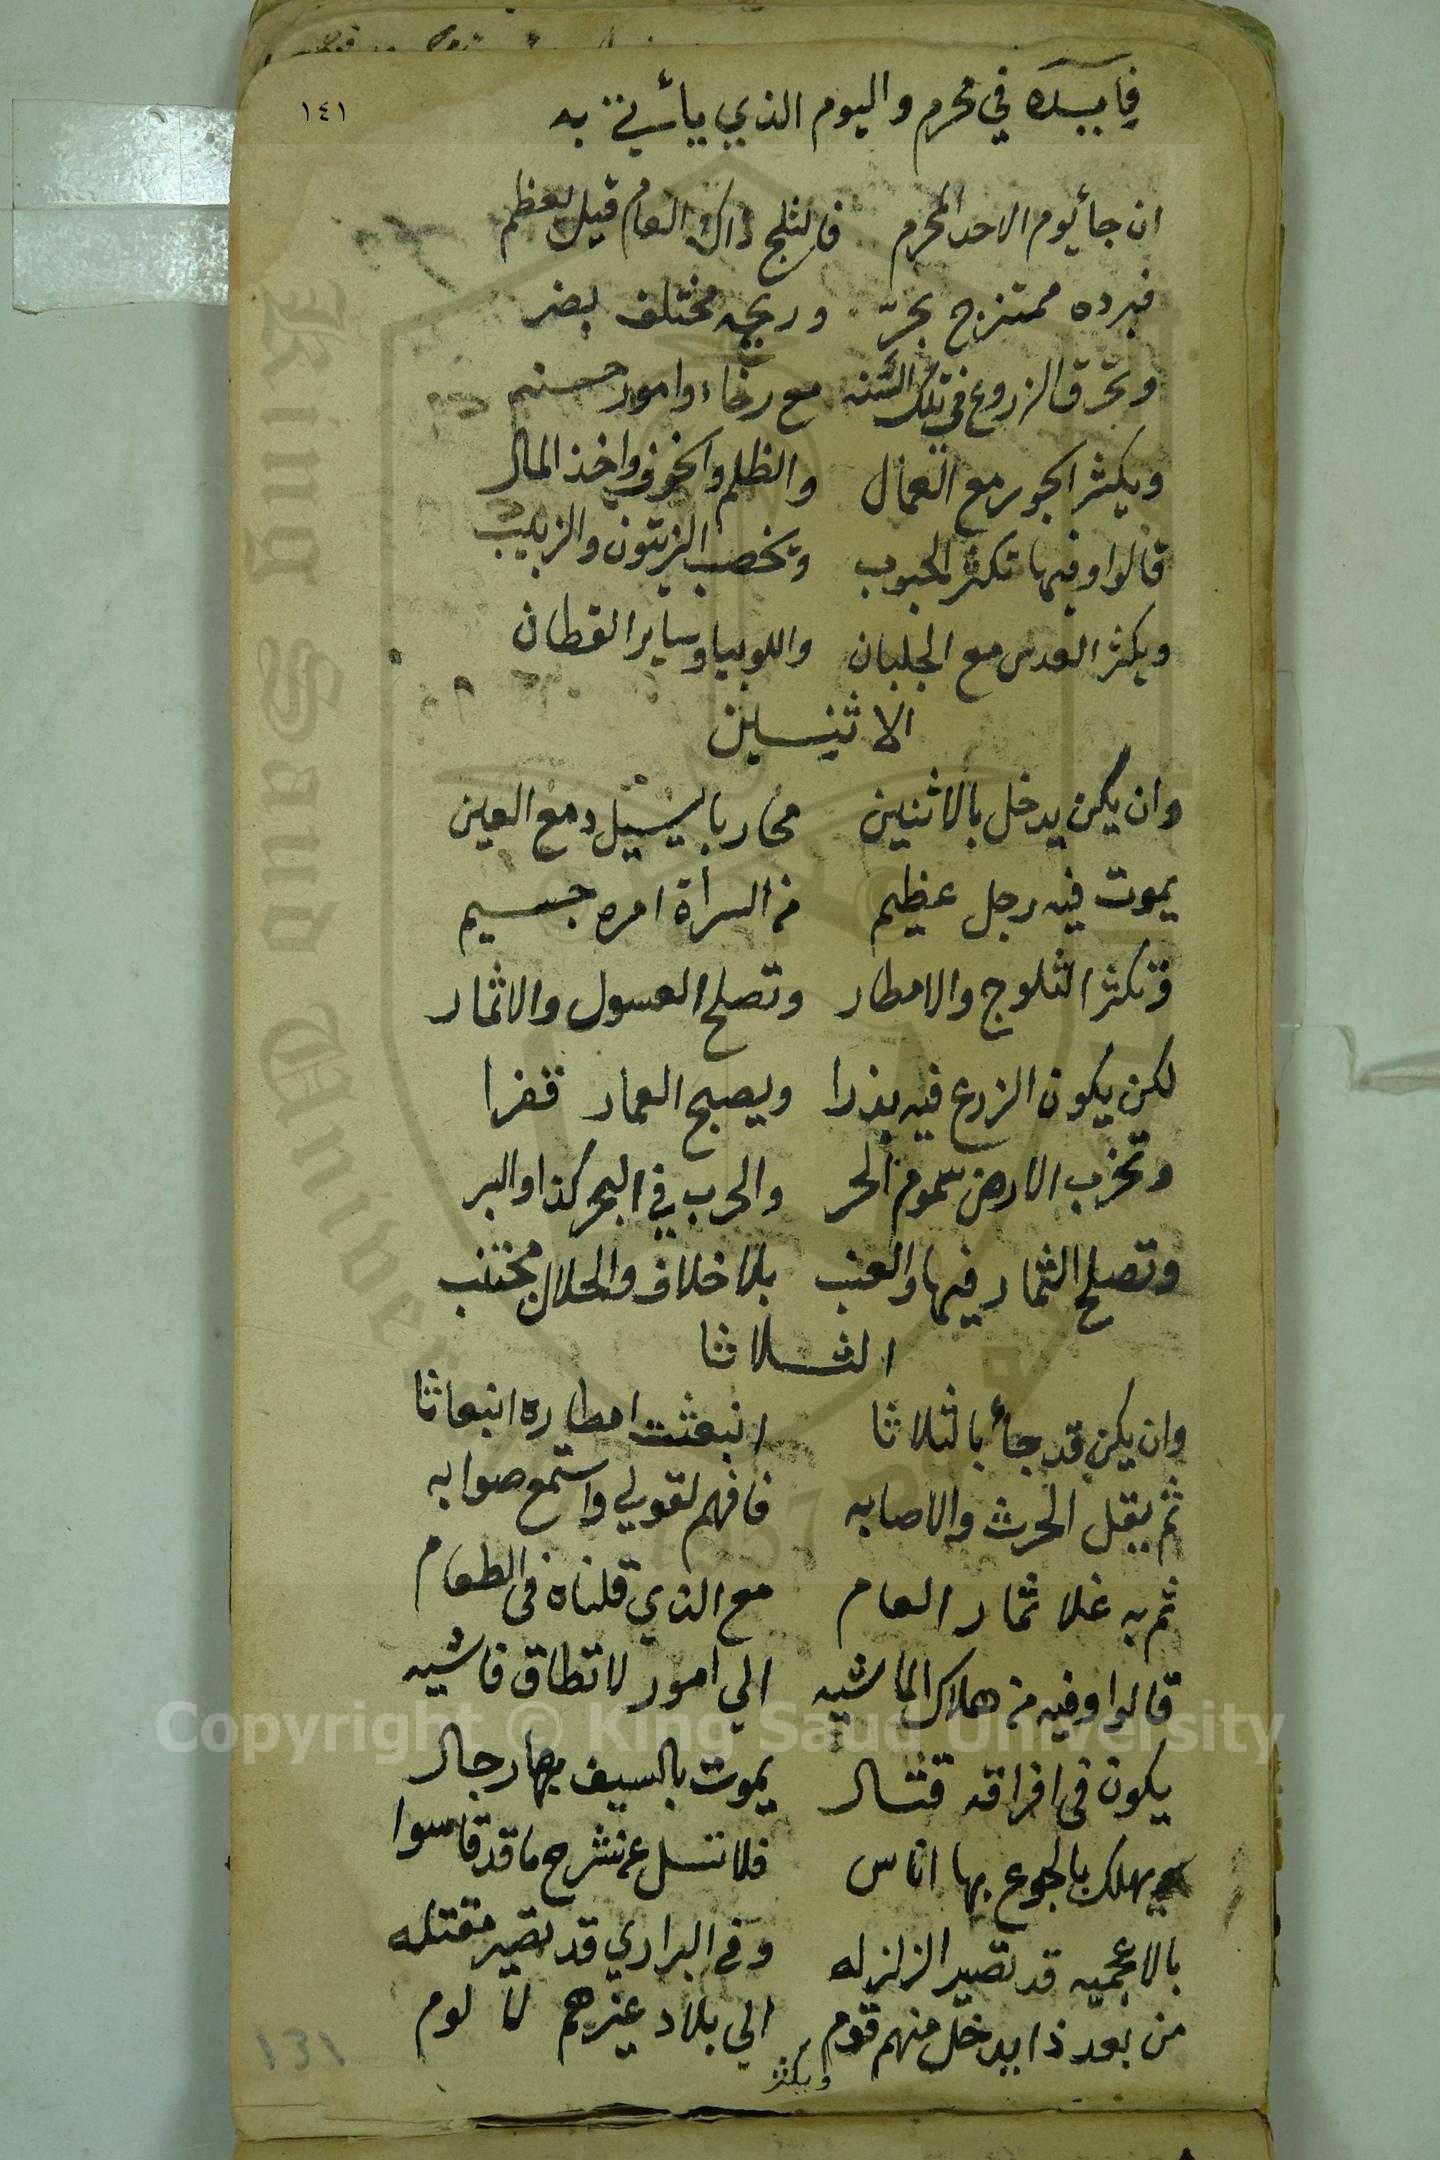 ١٤١
فايدة في محرم واليوم الذي يأتي به
ان جا يوم الاحد المحرم فالثلج ذاك العام قيل يعظم
فبرده ممتزج بحرّ وريحه مختلف بضر
وتحرق الزروع في تلك السنه مع رخاء وامور حسنه
ويكثر الجور مع العمال والظلم والخوف واخذ المال
قالوا وفيها تكثر الحبوب وتخصب الزيتون والزبيب
ويكثر العدس مع الجلبان واللوبيا وساير القطان
الاثنين
وان يكن يدخل بالاثنين محاربا يسيل دمع العين
يموت فيه رجل عظيم من السراة امره جسيم
وتكثر الثلوج والامطار وتصلح العسول والاثمار
لكن يكون الزرع فيه بذرا ويصبح العمار قفرا
وتخرب الارض سموم الحر والحرب في البحر كذا والبر
وتصلح الثمار فيها والعنب بلا خلاف والحلال مجتنب
الثلاثا
وان يكن قد جأ بالثلاثا انبعثت امطاره انبعاثا
ثم يقل الحرث والاصابه فافهم لقولي واستمع صوابه
ثم به غلا ثمار العام مع الذي قلناه في الطعام
قالوا وفيه من هلاك الماشيه الي امور لا تطاق فاشيه
يكون في افراقه قتال يموت بالسيف بها رجال
ويهلك بالجوع بها اناس فلا تسل عن شرح ما قد قاسوا
بالاعجميه قد تصير الزلزله وفي البراري قد تصير مقتله
من بعد ذا يدخل منهم قوم الي بلاد غيرهم لا لوم
ويكثر
١٤١
King Saud University
1957
Copyright © King Saud University